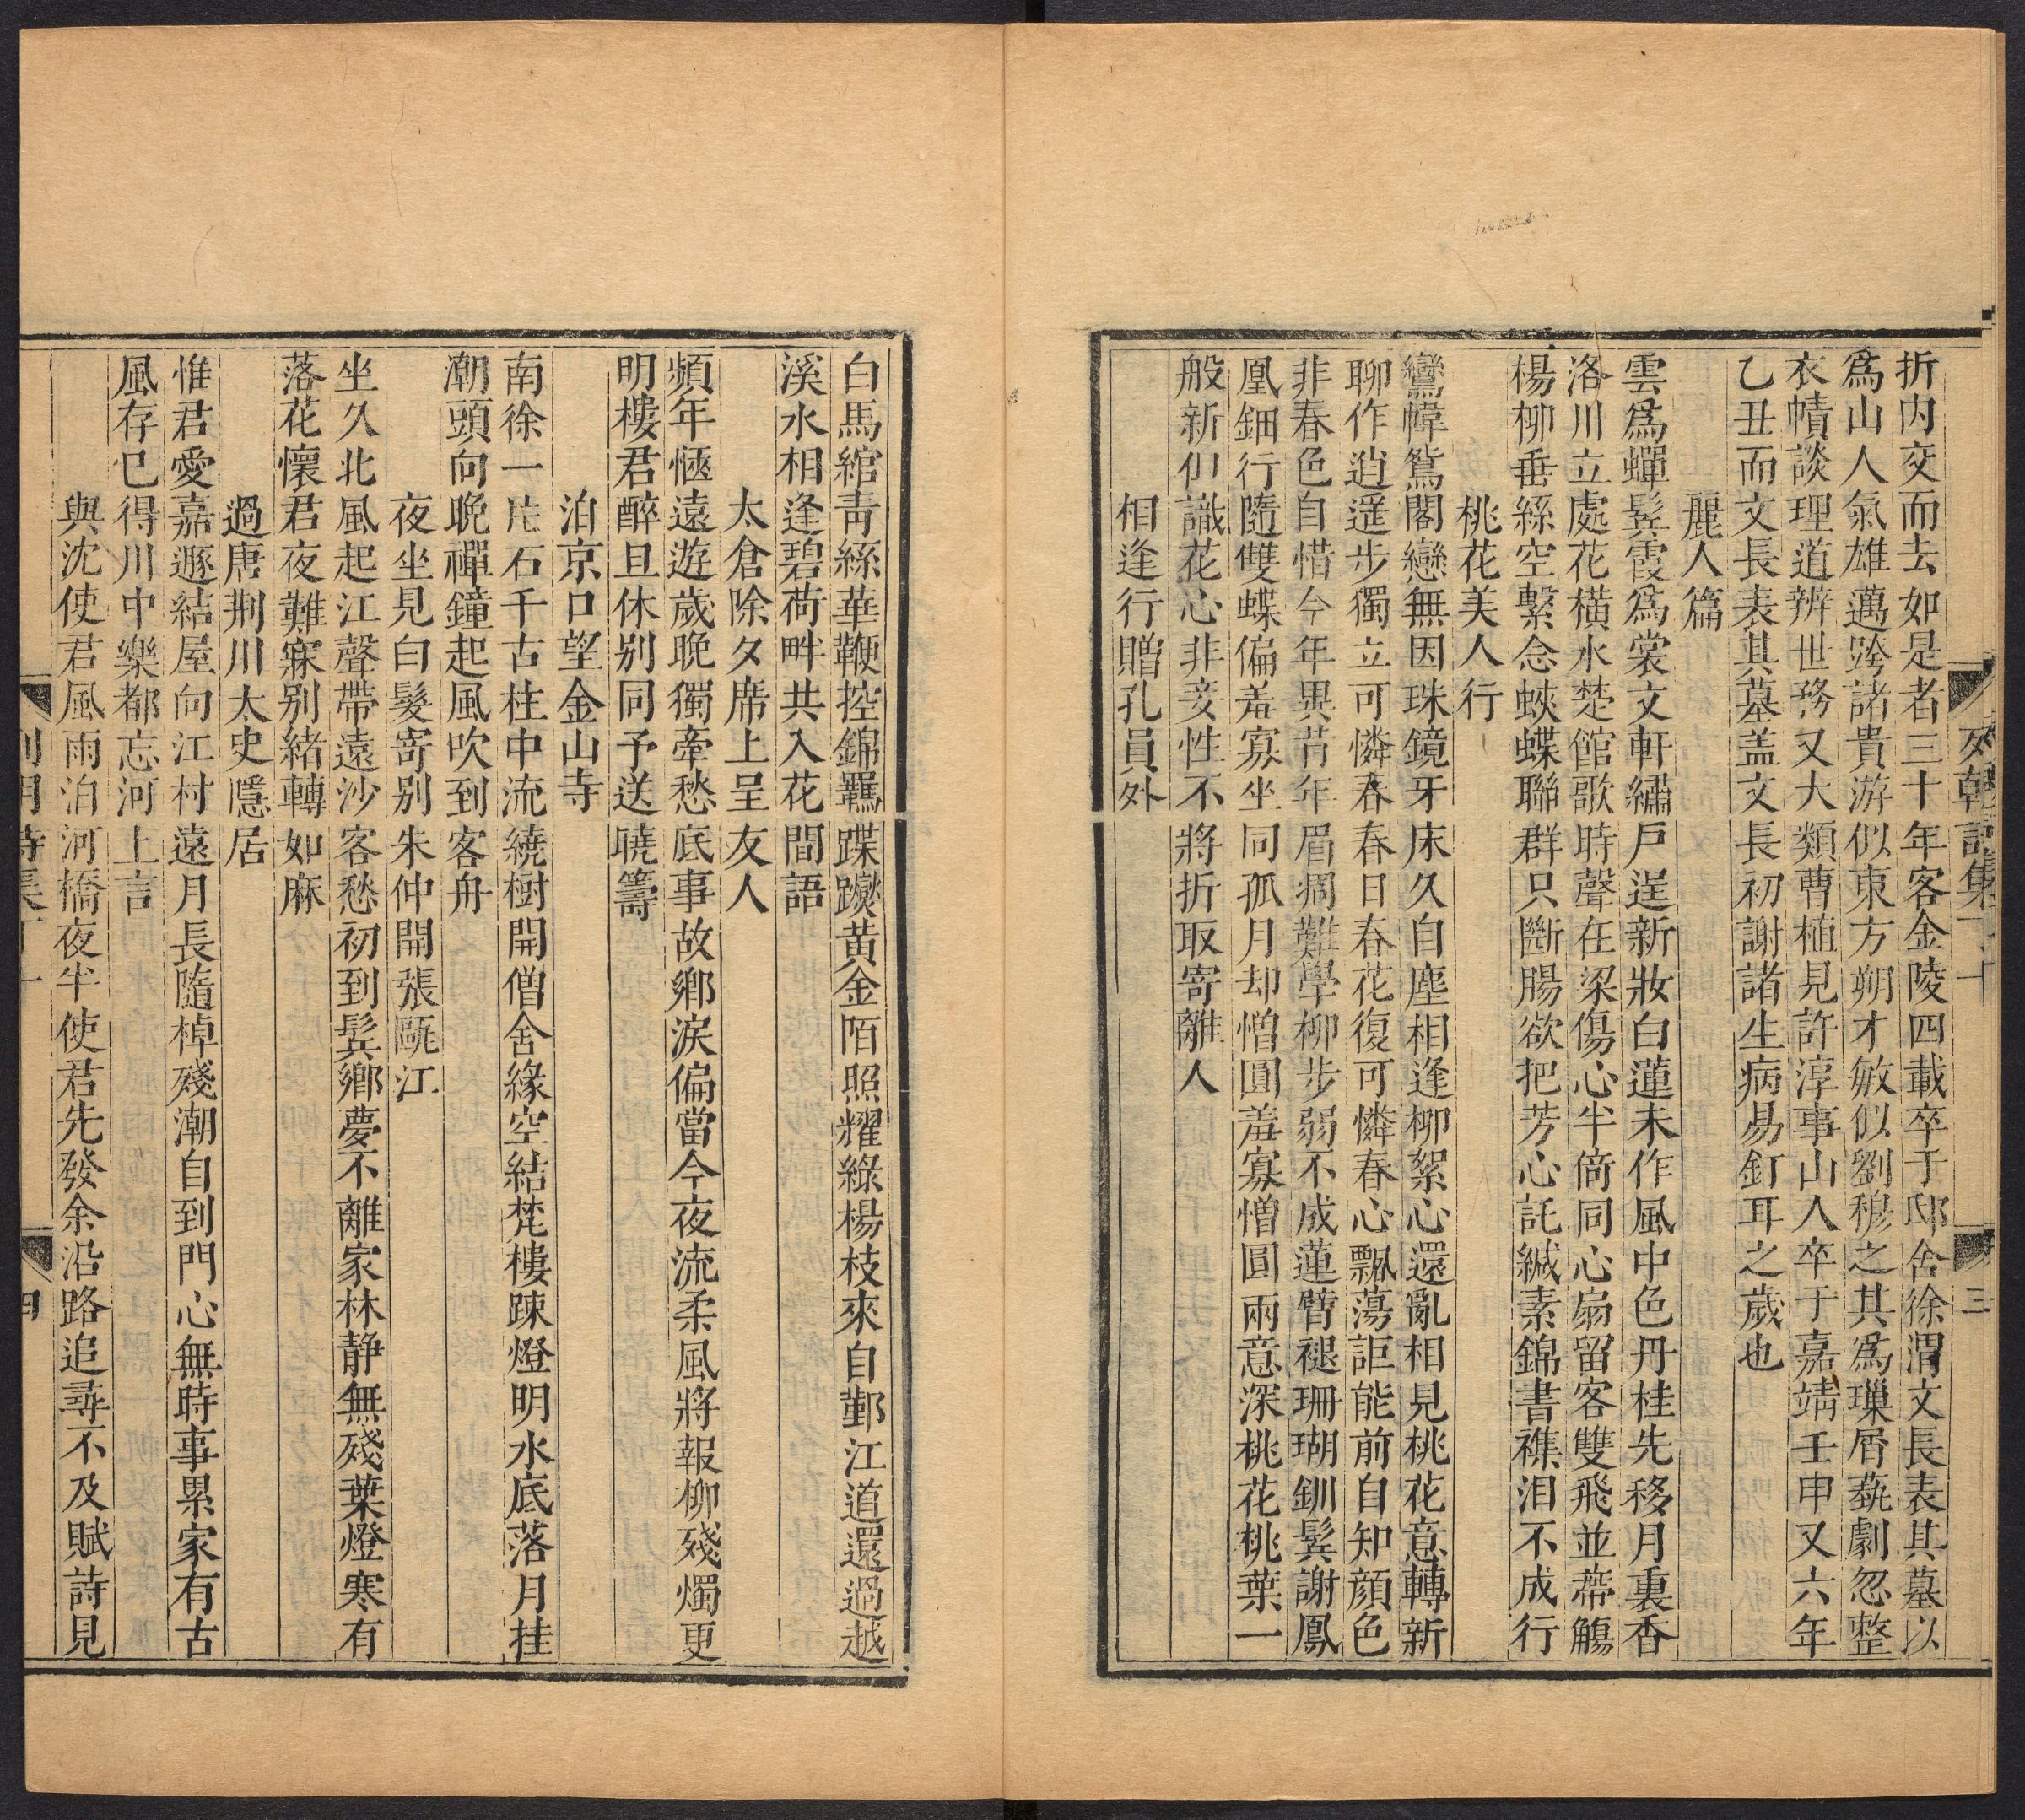 折内交而去如是者三十年客金陵四載卒于邸舍徐渭文長表其墓以
爲山人氣雄邁跨諸貴游似東方朔才敏似劉穆之其爲璅屑蓺劇忽整
衣幘談理道辨世務又大類曹植見許淳事山人卒于嘉靖壬申又六年
乙丑而文長表其墓盖文長初謝諸生病易釘耳之歲也
麗人篇
雲爲蟬鬂霞爲裳文軒繡戶逞新妝白蓮未作風中色丹桂先移月裏香
洛川立處花橫水楚館歌時聲在梁傷心半倚同心扇留客雙飛並蔕觴
楊柳垂絲空繫念蛺蝶聯群只斷腸欲把芳心託緘素錦書襍泪不成行
桃花美人行
鸞幃鴛閣戀無因珠鏡牙床久自塵相逢柳絮心還亂相見桃花意轉新
聊作逍遥步獨立可憐春春日春花復可憐春心飄蕩詎能前自知顏色
非春色自惜今年異昔年眉㨪難學柳步弱不成蓮臂褪珊瑚釧鬂謝鳳
凰鈿行隨雙蝶偏羞寡坐同孤月却憎圓羞寡憎圓兩意深桃花桃葉一
般新似識花心非妾性不將折取寄離人
相逢行贈孔員外
白馬綰青絲華鞭控錦羈蹀躞黄金陌照耀綠楊枝來自鄞江道還過越
溪水相逢碧荷畔共入花間語
太倉除夕席上呈友人
頻年惬遠遊歲晚獨牽愁底事故鄉淚偏當今夜流柔風將報柳殘燭更
明樓君醉且休别同予送曉籌
泊京口望金山寺
南徐一片石千古柱中流繞樹開僧舍緣空結梵樓踈燈明水底落月挂
潮頭向晚禪鐘起風吹到客舟
夜坐見白髮寄别朱仲開張甌江
坐久北風起江聲帶遠沙客愁初到鬂鄉夢不離家林静無殘葉燈寒有
落花懷君夜難寐别緒轉如麻
過唐荆川太史隱居
惟君愛嘉遯結屋向江村遠月長隨棹殘潮自到門心無時事累家有古
風存已得川中樂都忘河上言
與沈使君風雨泊河橋夜半使君先發余沿路追尋不及賦詩見